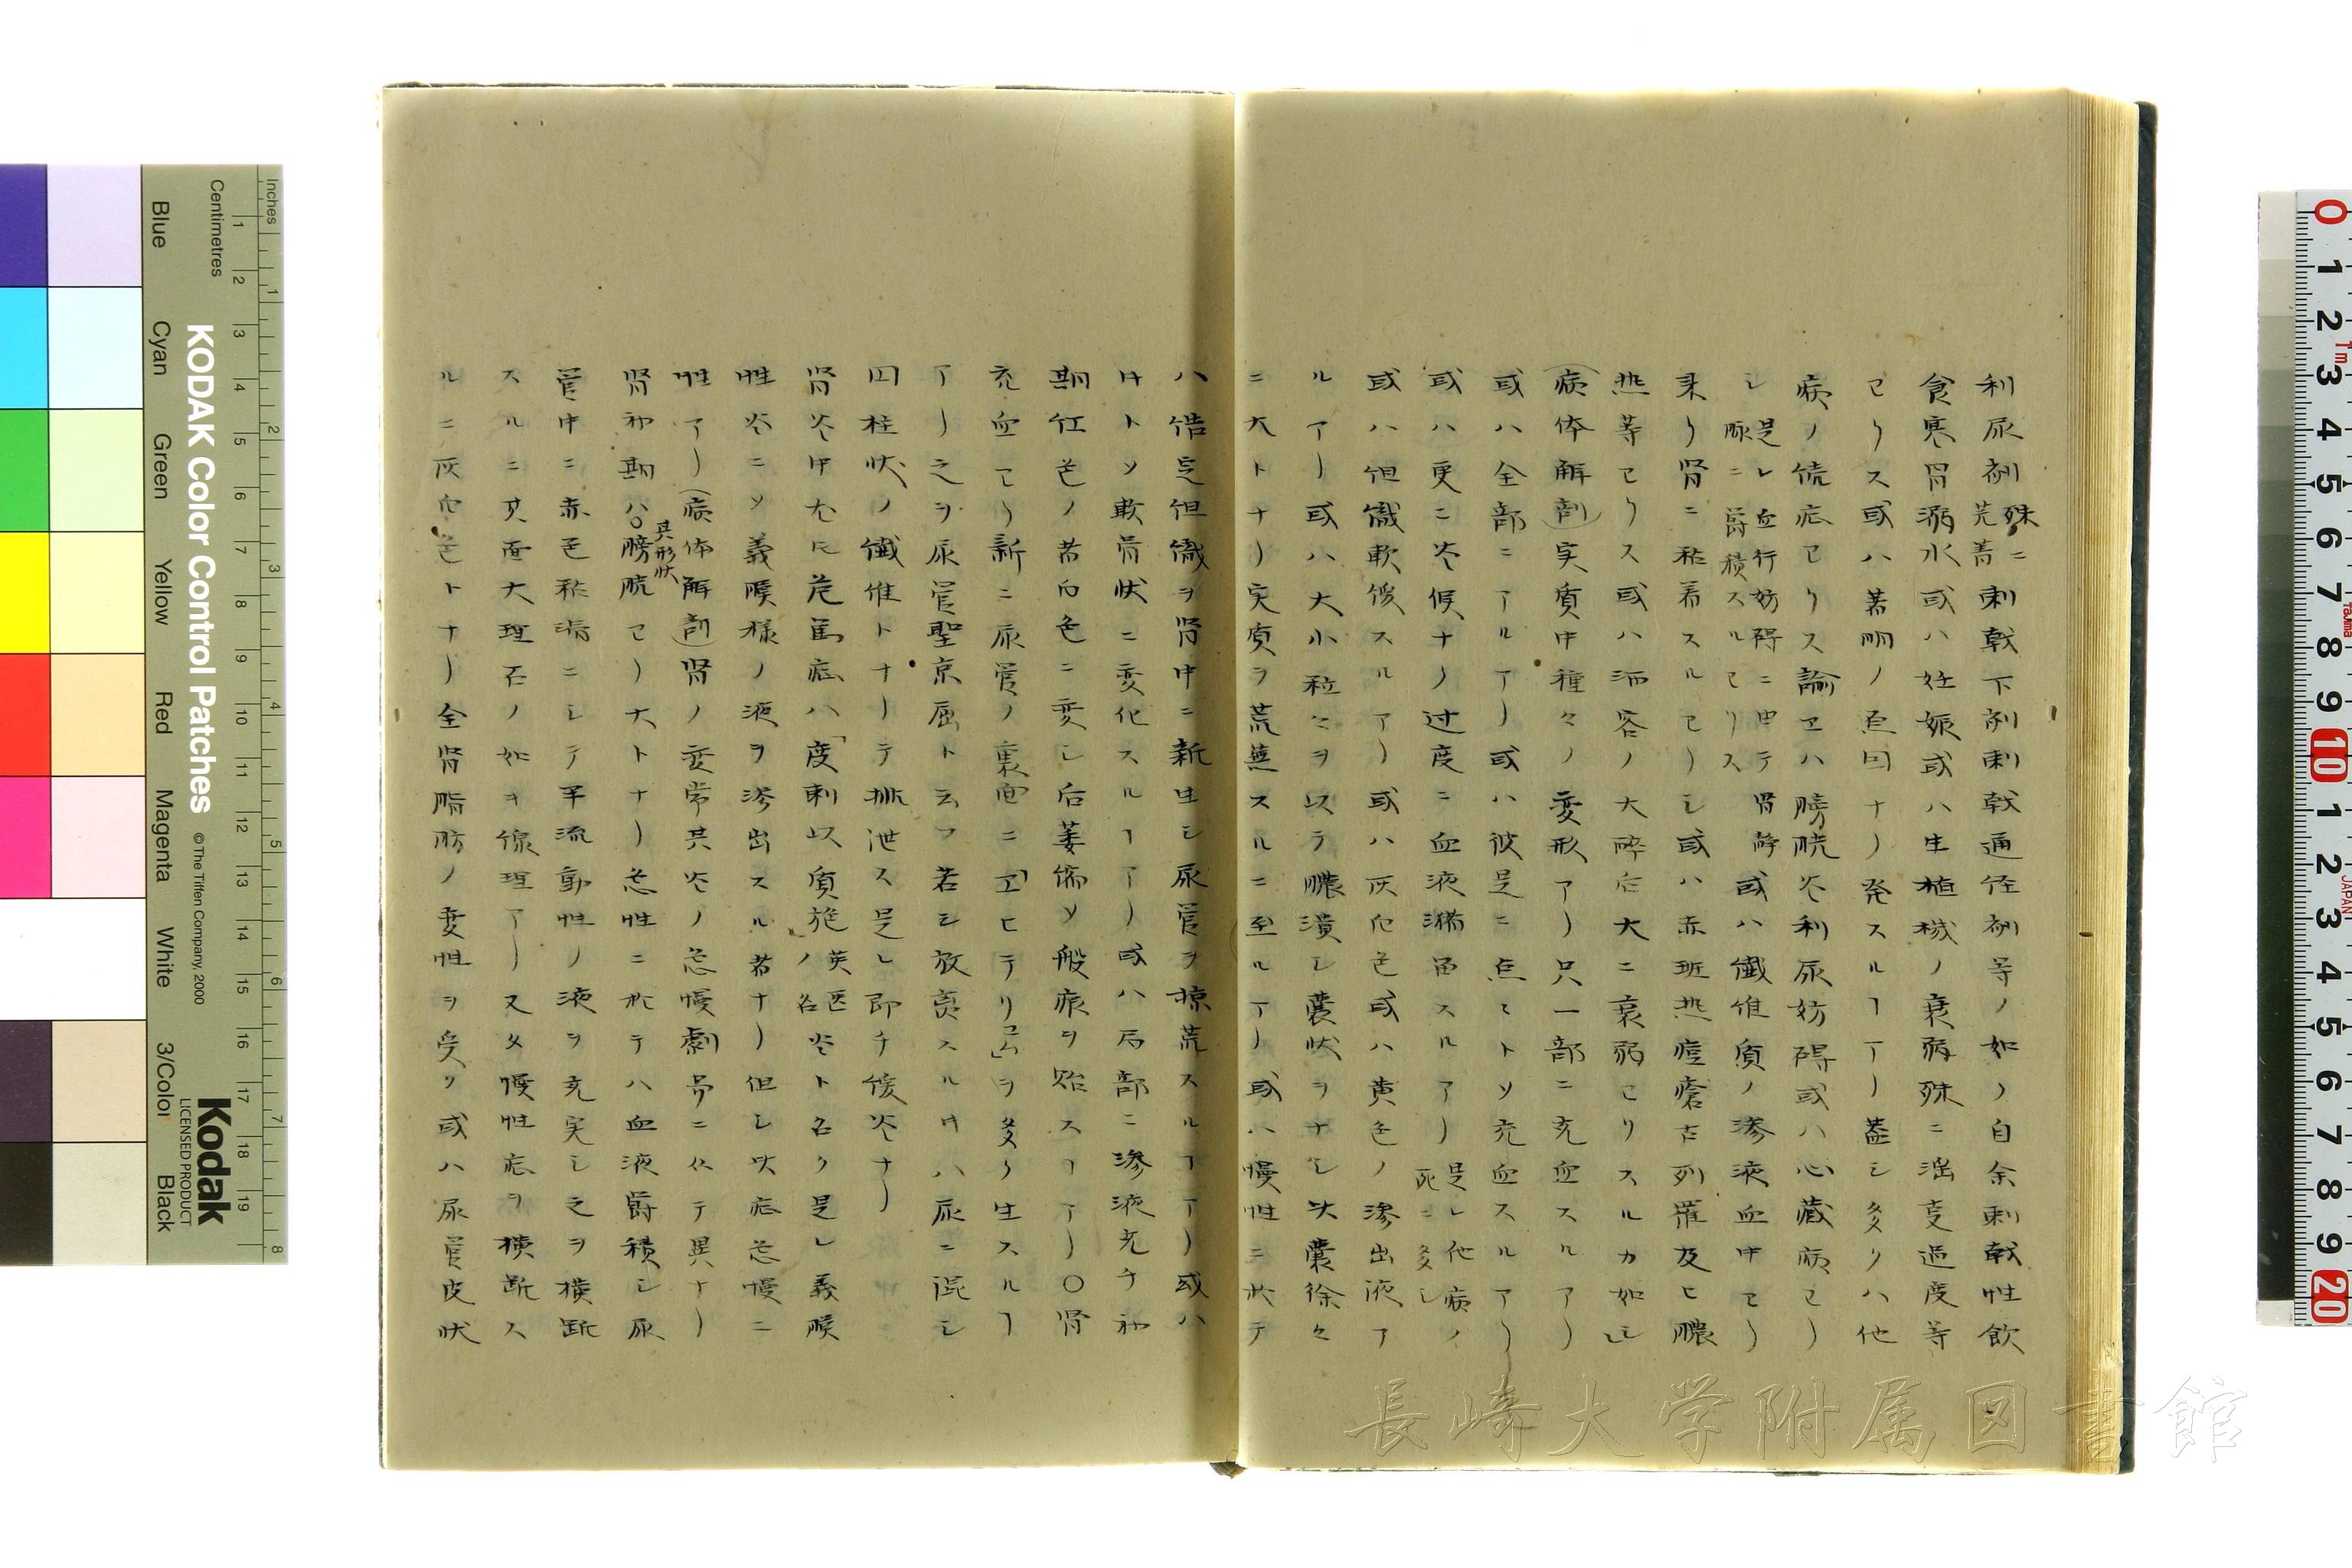 利尿剤殊ニ芫菁刺戟下剤刺戟通経剤等ノ如ノ自余刺戟性飲
食寒冒溺水或ハ妊娠或ハ生植機ノ衰弱殊ニ淫事過度等
ヨリス或ハ著明ノ原因ナノ発スルヿアリ蓋シ多クハ他
病ノ続症ヨリス論ヱハ膀胱炎利尿妨碍或ハ心臓病ヨリ
シ是レ血行妨碍ニ由テ腎静脈ニ爵積スルヨリス或ハ繊維質ノ滲液血中ヨリ
来リ腎ニ粘着スルヨリシ或ハ赤班熱痘瘡古列羅及ヒ膿
熱等ヨリス或ハ酒客ノ大酔后大ニ衰弱ヨリスルカ如シ
(病体解剖)実質中種々ノ変形アリ只一部ニ充血スルアリ
或ハ全部ニアルアリ或ハ彼是ニ点ヒトソ充血スルアリ
或ハ更ニ炎候ナク过度ニ血液滿畄スルアリ是レ他病ノ死ニ多シ
或ハ但織軟後スルアリ或ハ灰白色或ハ黄色ノ滲出液ア
ルアリ或ハ大小粒々ヲ以テ膿潰シ嚢状ヲナシ此嚢徐々
ニ大トナリ実質ヲ荒蕪スルニ至ルアリ或ハ慢性ニ於テ
ハ偣㝎但織ヲ腎中ニ新生シ尿管ヲ掠荒スルヿアリ或ハ
ロトソ軟骨状ニ変化スルヿアリ或ハ局部ニ滲液充チ初
期仁色ノ者白色ニ変シ后萎縮ソ般痕ヲ貽スヿアリ〇腎
充血ヨリ新ニ尿管ノ裏面ニ「ヱヒテリユム」ヲ多ク生スルヿ
アリ之ヲ尿管聖京屈ト云フ若シ放蕒スル寸ハ尿ニ混シ
円柱状ノ繊維トナリテ排泄ス是レ即チ優炎ナリ
腎炎中尤モ危篤症ハ「度刺以質施英医ノ名炎ト名ク是レ義膜
性炎ニソ義膜様ノ液ヲ滲出スル者ナリ但シ此症急慢ニ
性アリ(病体解剖)腎ノ変常其炎ノ急慢劇昜ニ仏テ異ナリ
腎初期ハ〇其形状膀胱ヨリ大トナリ急性ニ於テハ血液爵積シ尿
管中ニ赤色粘滞ニシテ半流動性ノ液ヲ充実シ之ヲ横断
スルニ其面大理石ノ如キ線理アリ又タ慢性症ヲ横断ス
ルニ灰白色トナリ全腎脂肪ノ変性ヲ受ク或ハ尿管皮状
長崎大学附属図書館
KODAK Color Control Patches
© The Tiffen Company, 2000
Kodak
LICENSED PRODUCT
Inches
Centimetres
Blue
Cyan
Green
Yellow
Red
Magenta
White
3/Color
Black